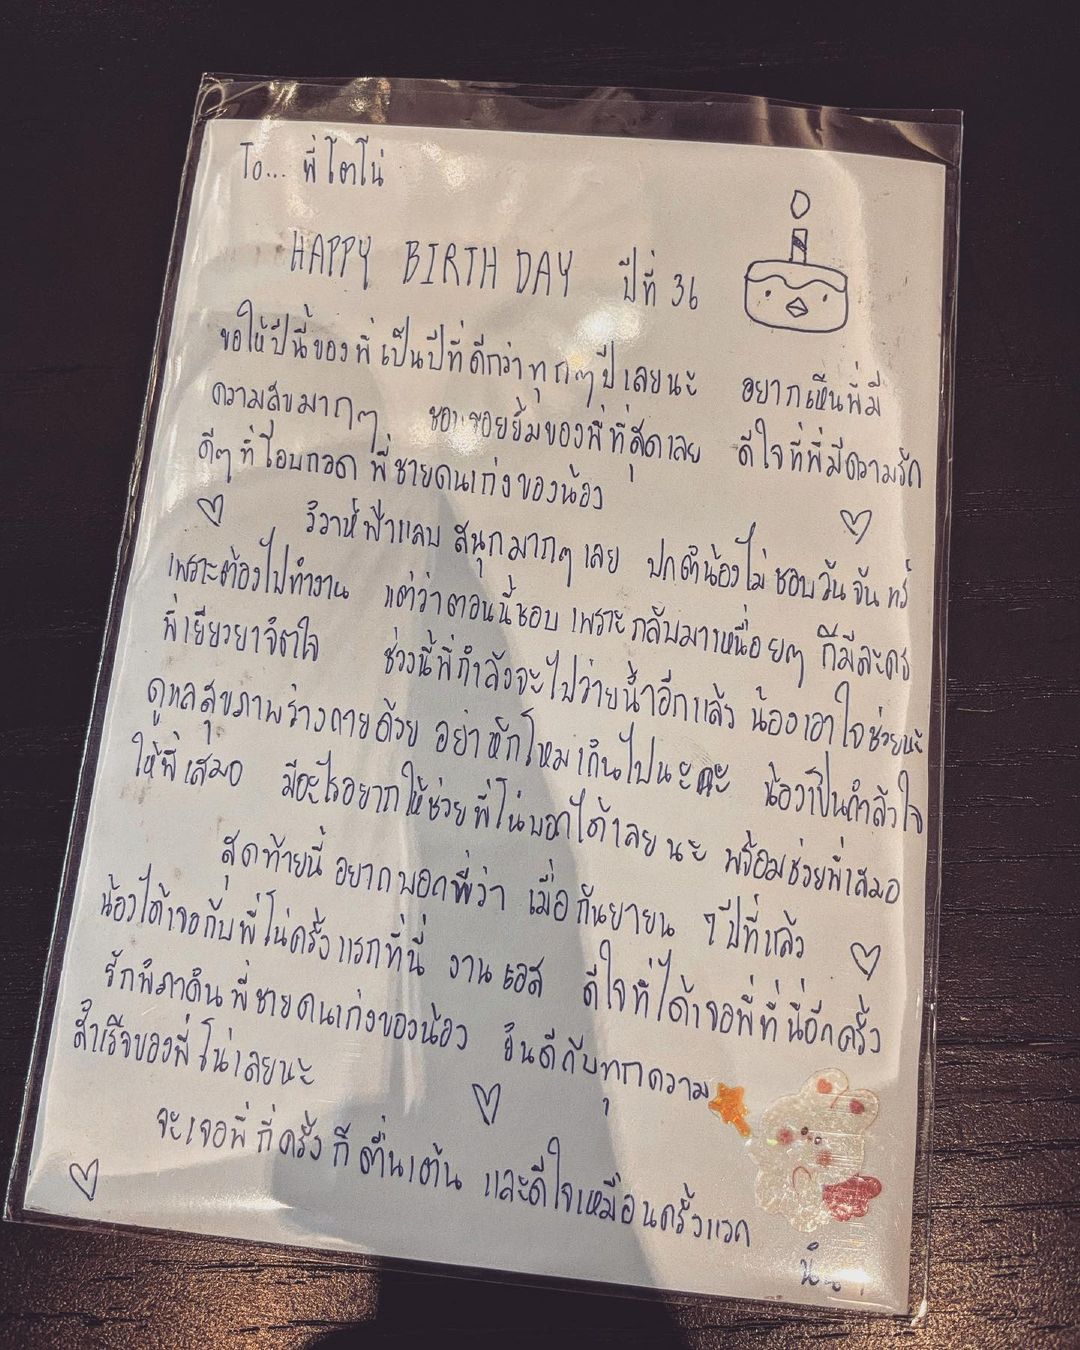 To... พี่โตโน่
HAPPY BIRTH DAY ปีที่ 36
ขอให้ปีนี้ของพี่เป็นปีที่ดีกว่าทุกๆปีเลยนะ อยากเห็นพี่มี
ความสุขมากๆ ชอบรอยยิ้มของพี่ที่สุดเลย ดีใจที่พี่มีความรัก
ดีๆที่โอบกอดพี่ชายคนเก่งของน้อง
วิวาห์ฟ้าแลบ สนุกมากๆเลย ปกติน้องไม่ชอบวันจันทร์
เพราะต้องไปทำงาน แต่ว่าตอนนี้ชอบ เพราะกลับมาเหนื่อยๆ ก็มีละคร
พี่เยียวยาจิตใจ ช่วงนี้พี่กำลังจะไปว่ายน้ำอีกแล้ว น้องเอาใจช่วยนะ
ดูแลสุขภาพร่างกายด้วย อย่าหักโหมเกินไปนะคะ น้องเป็นกำลังใจ
ให้พี่เสมอ มีอะไรอยากให้ช่วยพี่โน่บอกได้เลยนะ พร้อมช่วยพี่เสมอ
สุดท้ายนี้ อยากบอกพี่ว่า เมื่อกันยายน 7 ปีที่แล้ว
น้องได้เจอกับพี่โน่ครั้งแรกที่นี่ งานเอส ดีใจที่ได้เจอพี่ที่นี่อีกครั้ง
รักพี่ภาคินพี่ชายคนเก่งของน้อง ยินดีกับทุกความ
สำเร็จของพี่โน่เลยนะ
จะเจอพี่กี่ครั้ง ก็ตื่นเต้น และดีใจเหมือนครั้งแรก